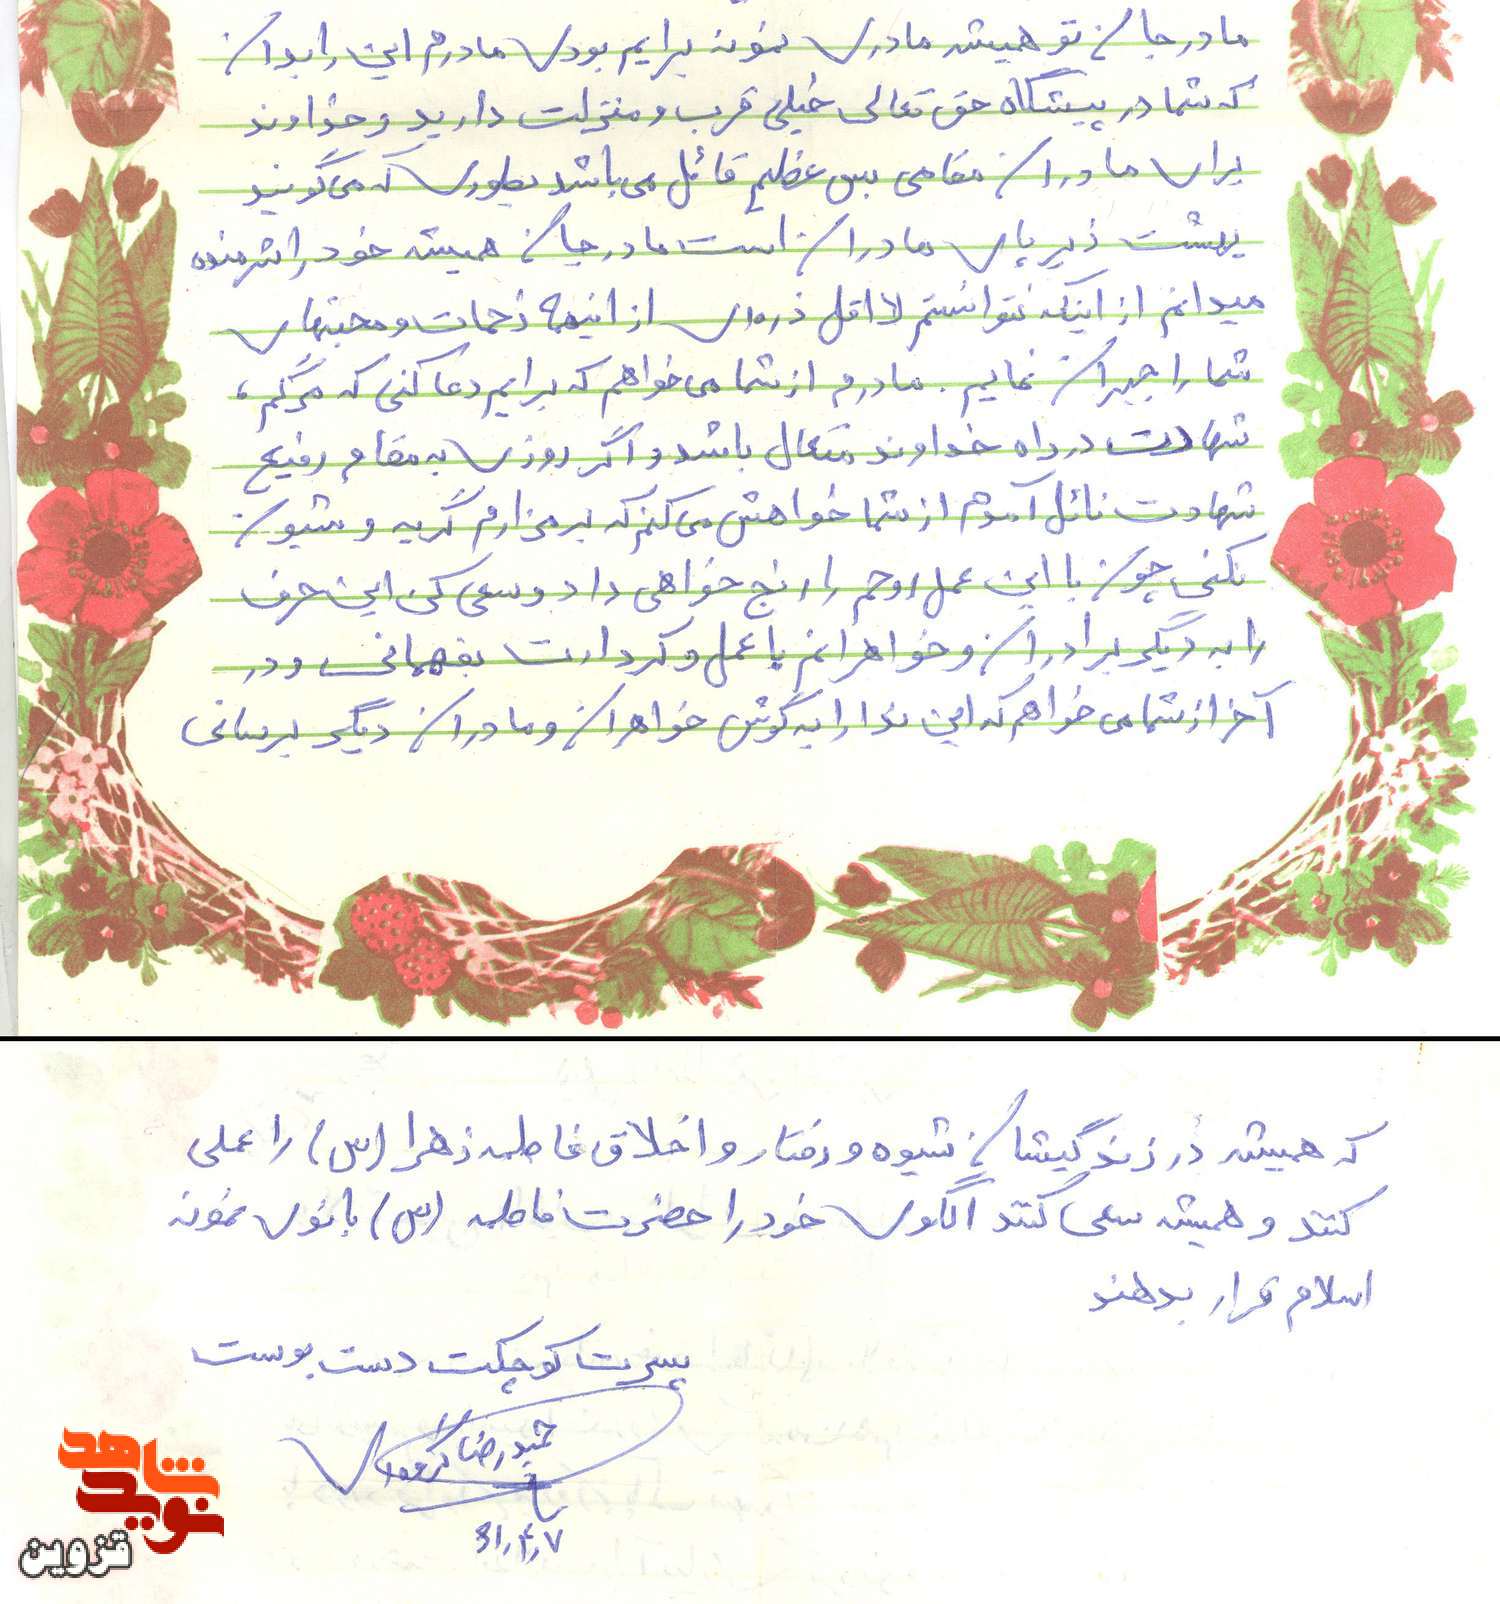 مادر جان تو همیشه مادری نمونه برایم بودی مادرم این را بدان
که شما در پیشگاه حق تعالی خیلی قرب و منزلت دارید و خداوند
برای مادران مقامی بس عظیم قائل می باشد بطوری که می گویند
بهشت زیر پای مادران است مادر جان همیشه خود را شرمنده
میدانم از اینکه نتوانستم لااقل ذره ای از اینهمه زحمات و محبتهای
شما را جبران نمایم . مادرم از شما می خواهم که برایم دعا کنی که مرگم ،
شهادت در راه خداوند متعال باشد و اگر روزی به مقام رفیع
شهادت نائل آمدم از شما خواهش می کنم که بر مزارم گریه و شیون
نکنی چون با این عمل روحم را رنج خواهی داد و سعی کن این حرف
را به دیگر برادران و خواهرانم با عمل و کردارت بفهمانی و در
آخر از شما می خواهم که این ندا را به گوش خواهران و مادران دیگر برسانی
که همیشه در زندگیشان شیوه و رفتار و اخلاق فاطمه زهرا (س) را عملی
کنند و همیشه سعی کنند الگوی خود را حضرت فاطمه (س) بانوی نمونه
اسلام قرار بدهند
پسرت کوچکت دست بوست
حمیدرضا
۳۱ر۴ر۷
نوید شاهد
قزوین